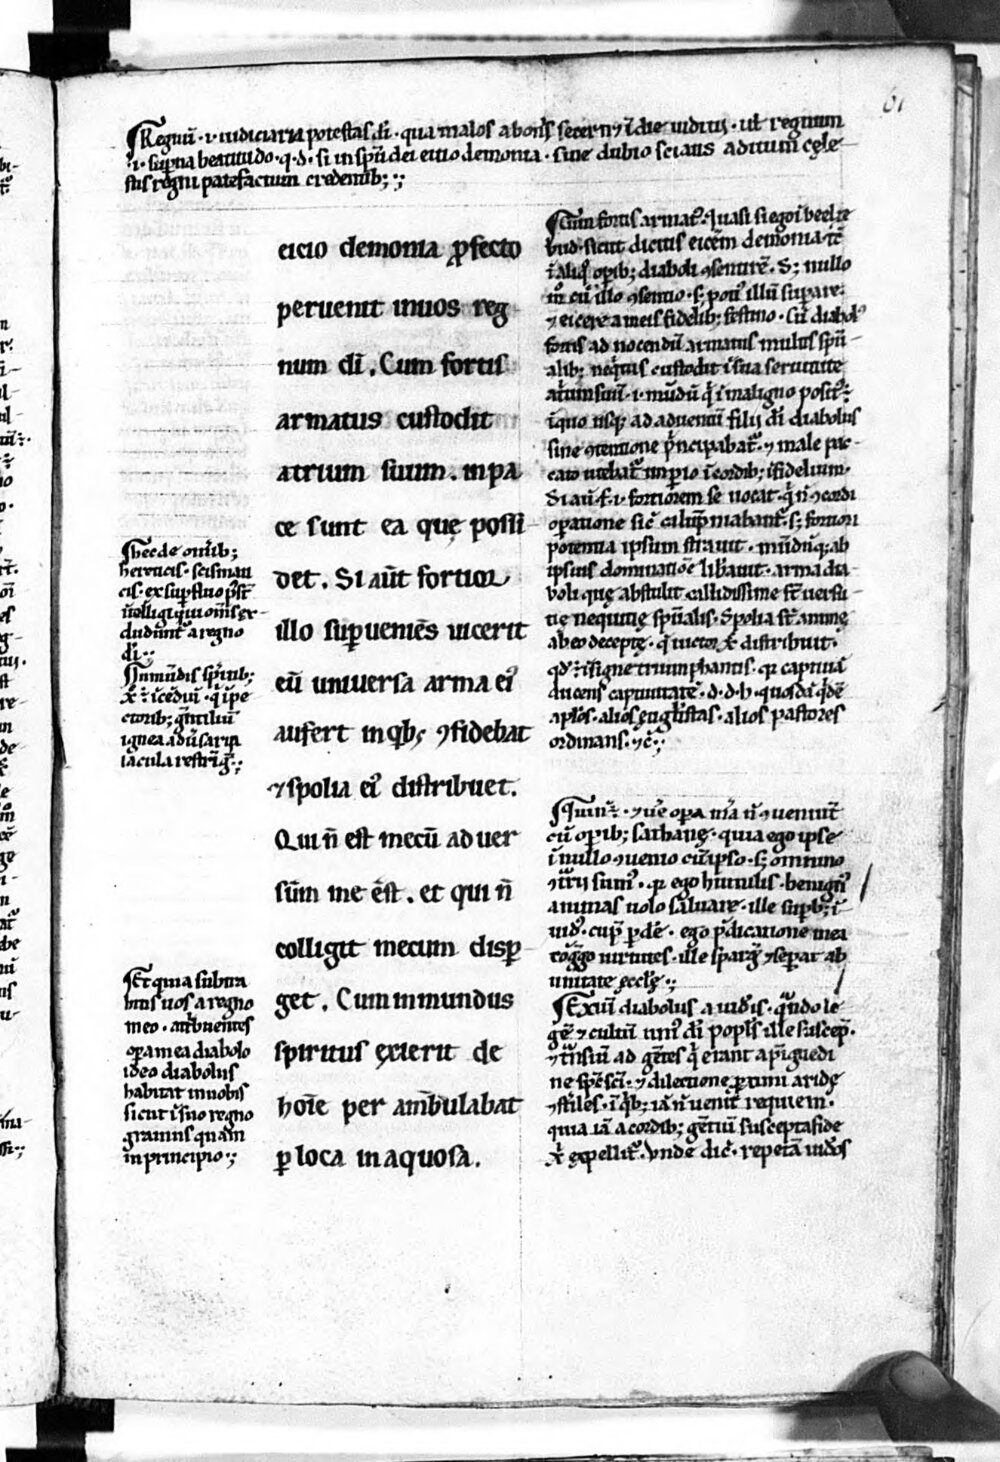 61
Regnū · i · iudiciaria potestas dī · qua malos a bonis secernꝫ ī die iudicij · ul regnum
·i· supna beatitudo · q · d · si in spū dei eicio demonia · sine dubio sciatis aditum cęle
stis regni patefactum credentib;
eicio demonia ꝓfecto
peruenit inuos reg
num dī . Cum fortis
armatus custodit
atrium suum . inpa
ce sunt ea quę possi
det . Si aūt fortior
illo supueniēs uicerit
eū uniuersa arma ei᾽
aufert inqb; ꝯfidebat
⁊ spolia ei᾽ distribuet .
Qui n̄ est mecū aduer
sūm me ēst . et qui n̄
colligit mecum disp
get . Cum inmundus
spiritus ęxierit de
hoīe per ambulabat
ꝑ loca inaquosa .
hęc de omīb;
hereticis · scismati
cis · ex supstitio
ītelligi qui om̄s ex
cludunt᾽ a regno
dī
Inmūdis spirib;
ctorib; gentiliū
ignea aduersaria
iacula restrīg
Et quia subtra
hitis uos a regno
meo · attbuentes
opa mea diabolo
ideo diabolus
habitat inuobis
sicut ī suo regno
grauius quam
in principio
Cum fortis armat᾽ · Quasi si ego ī beelze
bud · sicut dicitis eicerem demonia
ī aliq᾽ opib; diaboli ꝯsentirē · S; nullo
m̄ cū illo ꝯsentio · s; poti᾽ illū supare
⁊ eicere a meis fidelib; festino · Cū diabol᾽
fortis ad nocendū armatus multis spū
alib; neqtiis custodit ī sua seruitute
atrium suū · i · mūdū q̄ ī maligno posit᾽
ī quo usq; ad aduentū filij dī diabolus
sine ꝯtentione pncipabat᾽ · ⁊ male pac
cato utebat᾽ impio ī cordib; īfidelium ·
Si aū · i · fortiorem se uocat
opatione
potentia ipsum strauit · mūdūq; ab
ipsius dominatiōe libauit · arma dia
boli quę abstulit callidissime st̄ uersu
tię nequitię spūalis · Spolia st̄ animę
ab eo deceptę · q̄ uictor xp̄ distribuit ·
īsigne triumphantis · qr captiuā
ducens captiuitatē · d · d · h · quosdā qdē
aplōs · alios euglistas · alios pastores
ordinans · ⁊c̄
opa mīa n̄ ꝯueniunt
cū opib; sathanę · quia ego ipse
ī nullo ꝯuenio cū ipso · s; omnino
ꝯtrij sum᾽ · qr ego humilis · benign᾽
animas uolo saluare · ille supb; ī
uid᾽ · cupit pdē · ego pdicatione mea
cōggo uirtutes · ille spargit ⁊ sepat ab
unitate ecclę
Exiit diabolus a iudęis · quando le
gē ⁊ cultū uni᾽ dī poplis ille suscep
⁊ trāsiit ad gētes q̄ erant
ne spē scī · ⁊ dilectione
ꝯstiles · ī qb; iā n̄ uenit requiem ·
quia iā a cordib; gētiū suscepta fide
xp̄ expellit᾽ · Vnde dic · repetā iudęos